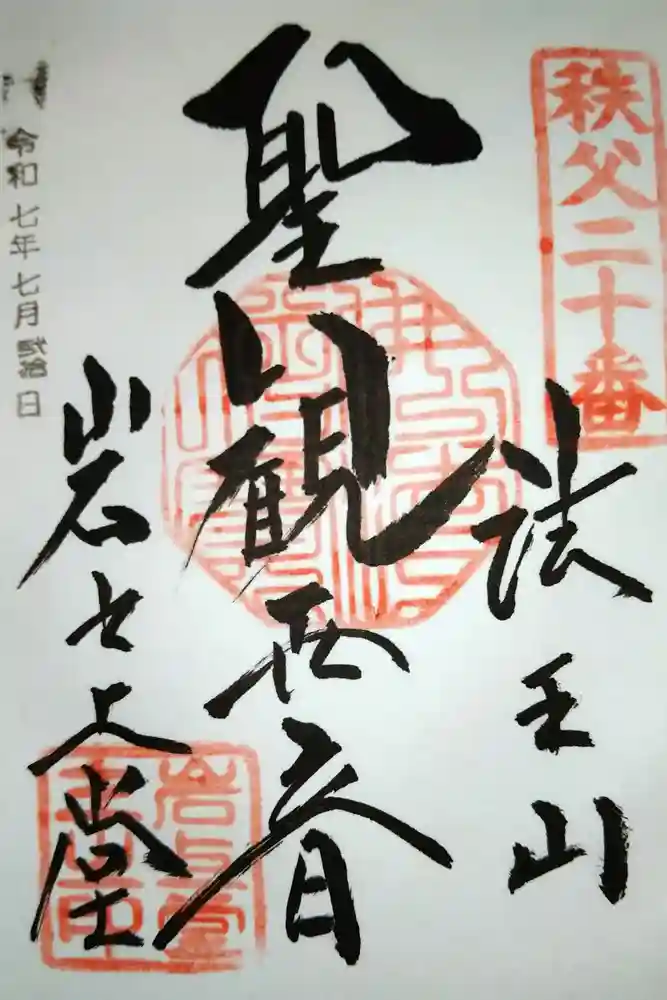 秩父二十番
法王山
聖観世音
岩之上堂
令和七年七月弐拾日
岩上堂